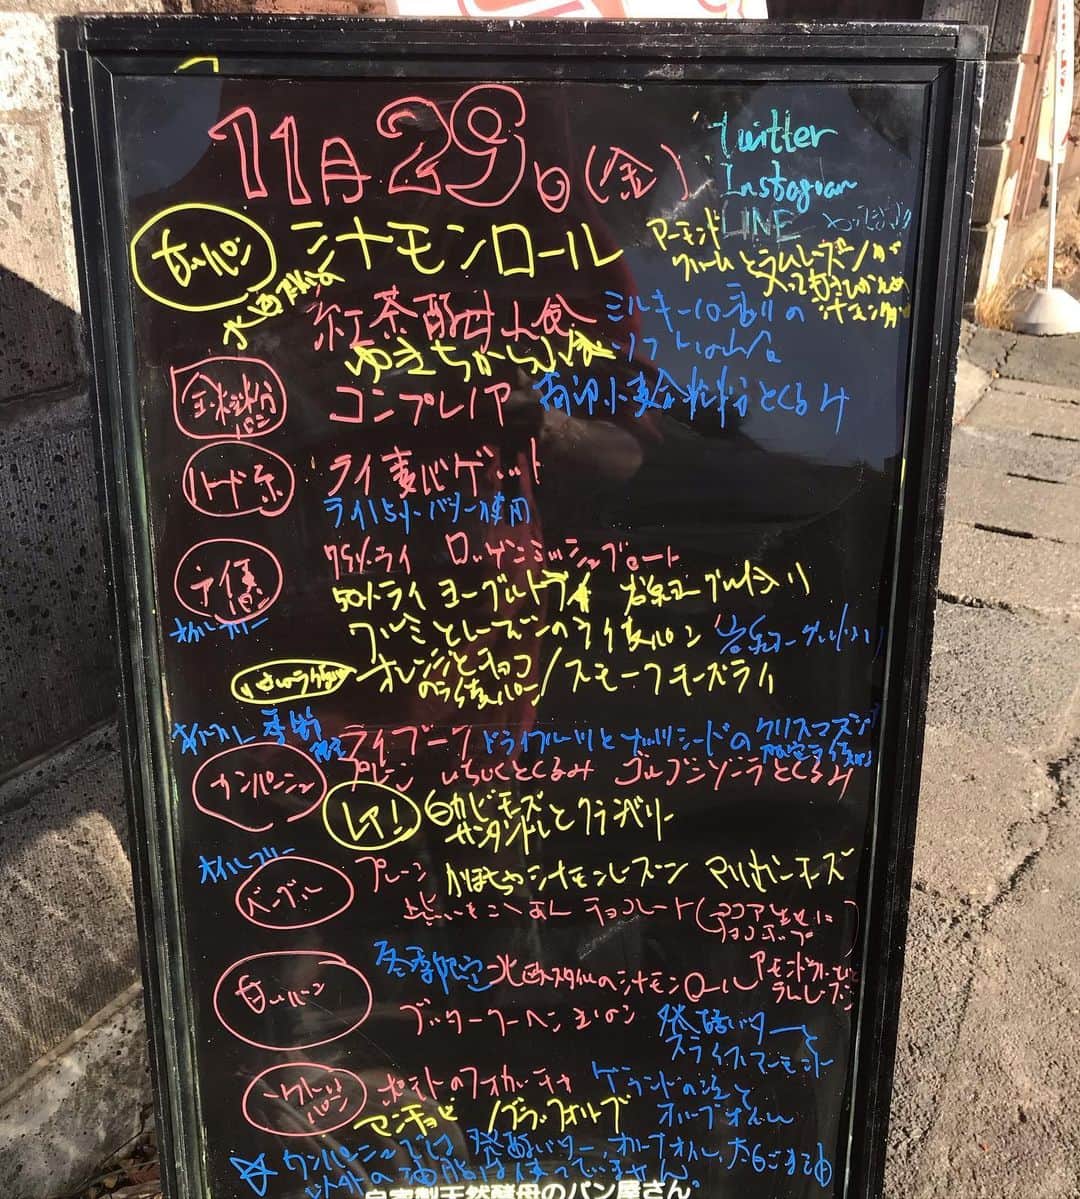 11月29日(金)
Twitter
Instagram
LINE
甘いパン
シナモンロール
アーモンド
クリームとラムレーズンが
入って
紅茶酵母山食
ミルキーな香りの
ソフトな山食
ゆきちから
全粒粉パン
コンプレノア
南部小麦全粒粉とくるみ
ハード系
ライ麦バゲット
ライ15% バター使用
ライ麦パン
75%ライ ロッゲンミッシュブロート
50%ライ ヨーグルトライ 岩泉ヨーグルト入り
オイルフリー
クルミとレーズンのライ麦パン 岩泉ヨーグルト入り
オレンジとチョコのライ麦パン/スモークチーズライ
季節限定
ライブーク ドライフルーツとナッツシードのクリスマス限定ライ麦パン
カンパーニュ
プレーン いちじくとくるみ ゴルゴンゾーラとくるみ
レア!
白カビチーズ
サンタンドレとクランベリー
オイルフリー
ベーグル
プレーン かぼちゃシナモンレーズン マリボーチーズ
チョコレート(ココア生地にチョコチップ)
甘いパン
冬季限定 北欧スタイルのシナモンロール アーモンドクリームとラムレーズン
ブッタークーヘン
発酵バターと
スライスアーモンド
しょっぱいパン
ポテトのフォカッチャ
ゲランドの塩と
オリーブオイル
アンチョビ/ブラックオリーブ
☆カンパーニュでは発酵バター,オリーブオイル,太白ごま油
以外の油脂は使っていません
自家製天然酵母のパン屋さん